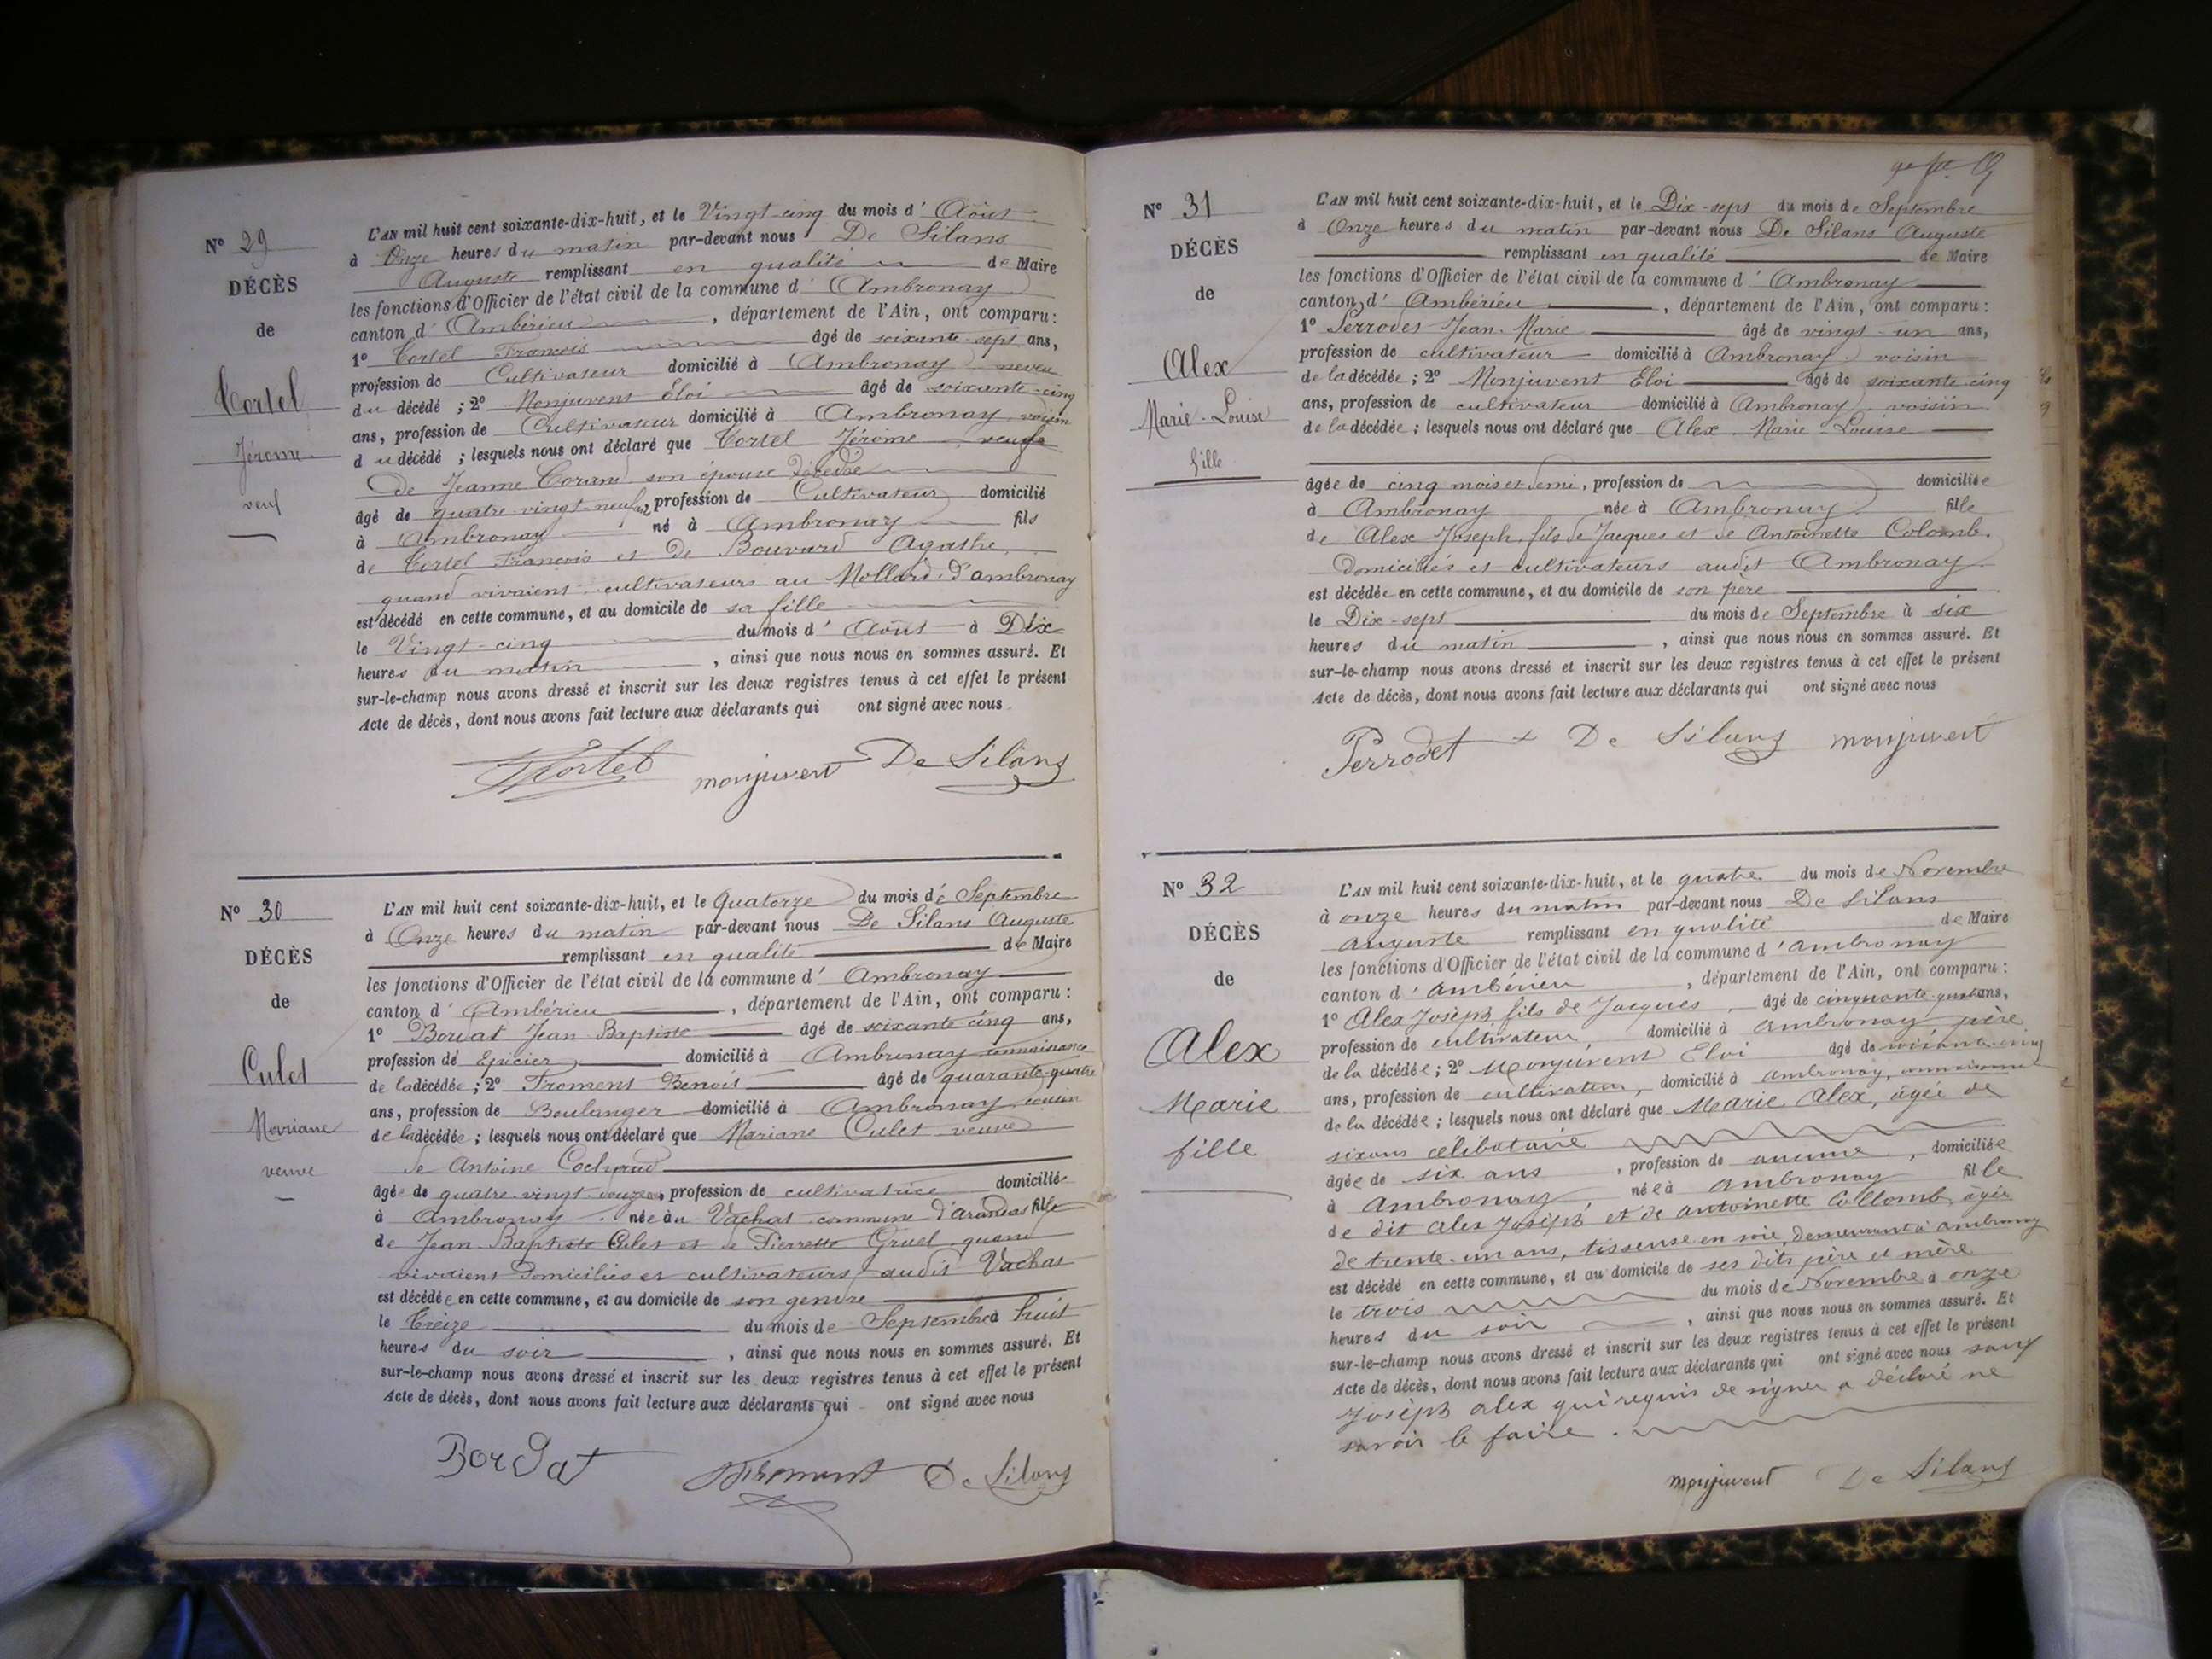 N° 29
DÉCÈS
de
Cortel
Jérome
veuf
L'AN mil huit cent soixante-dix-huit, et le Vingt-cinq du mois d' Août
à Onze heures du matin par-devant nous De Silans
Auguste remplissant en qualité de Maire
les fonctions d'Officier de l'état civil de la commune d' Ambronay
canton d' Ambérieu, département de l'Ain, ont comparu :
1° Cortel François âgé de soixante-sept ans,
profession de Cultivateur domicilié à Ambronay neveu
du décédé ; 2° Monjuvent Eloi âgé de soixante-cinq
ans, profession de Cultivateur domicilié à Ambronay voisin
du décédé ; lesquels nous ont déclaré que Cortel Jérome veuf
de Jeanne Corand son épouse
âgé de quatre-vingt-neuf ans, profession de Cultivateur domicilié
à Ambronay né à Ambronay fils
de Cortel François et de Bouvard Agathe
quand vivaient cultivateurs au Mollard d'ambronay
est décédé en cette commune, et au domicile de sa fille
le Vingt-cinq du mois d' Août à Dix
heures du matin, ainsi que nous nous en sommes assuré. Et
sur-le-champ nous avons dressé et inscrit sur les deux registres tenus à cet effet le présent
Acte de décès, dont nous avons fait lecture aux déclarants qui ont signé avec nous.
Cortel monjuvent De Silans
N° 30
DÉCÈS
de
Culet
Mariane
veuve
L'AN mil huit cent soixante-dix-huit, et le Quatorze du mois de Septembre
à Onze heures du matin par-devant nous De Silans Auguste
remplissant en qualité de Maire
les fonctions d'Officier de l'état civil de la commune d' Ambronay
canton d' Ambérieu, département de l'Ain, ont comparu :
1° Bordat Jean Baptiste âgé de soixante cinq ans,
profession de Epicier domicilié à Ambronay connaissance
de la décédée ; 2° Froment Benoit âgé de quarante-quatre
ans, profession de Boulanger domicilié à Ambronay cousin
de la décédée ; lesquels nous ont déclaré que Mariane Culet veuve
de Antoine
âgée de quatre-vingt-douze ans, profession de cultivatrice domiciliée
à Ambronay née au Vachat commune d'arandas fille
de Jean-Baptiste Culet et de Pierrette Gruel quand
vivaient domiciliés et cultivateurs audit Vachat
est décédée en cette commune, et au domicile de son gendre
le Treize du mois de Septembre à huit
heures du soir, ainsi que nous nous en sommes assuré. Et
sur-le-champ nous avons dressé et inscrit sur les deux registres tenus à cet effet le présent
Acte de décès, dont nous avons fait lecture aux déclarants qui ont signé avec nous
Bordat Froment De Silans
N° 31
DÉCÈS
de
Alex
Marie-Louise
fille
L'AN mil huit cent soixante-dix-huit, et le Dix-sept du mois de Septembre
à Onze heures du matin par-devant nous De Silans Auguste
remplissant en qualité de Maire
les fonctions d'Officier de l'état civil de la commune d' Ambronay
canton d' Ambérieu, département de l'Ain, ont comparu :
1° Perrodet Jean-Marie âgé de vingt-un ans,
profession de cultivateur domicilié à Ambronay voisin
de la décédée ; 2° Monjuvent Eloi âgé de soixante cinq
ans, profession de cultivateur domicilié à Ambronay voisin
de la décédée ; lesquels nous ont déclaré que Alex Marie-Louise
âgée de cinq mois et demi, profession de domiciliée
à Ambronay née à Ambronay fille
de Alex Joseph fils de Jacques et de Antoinette Colomb
domiciliés et cultivateurs audit Ambronay
est décédée en cette commune, et au domicile de son père
le Dix-sept du mois de Septembre à six
heures du matin, ainsi que nous nous en sommes assuré. Et
sur-le-champ nous avons dressé et inscrit sur les deux registres tenus à cet effet le présent
Acte de décès, dont nous avons fait lecture aux déclarants qui ont signé avec nous
Perrodet De Silans monjuvent
N° 32
DÉCÈS
de
Alex
Marie
fille
L'AN mil huit cent soixante-dix-huit, et le quatre du mois de Novembre
à onze heures du matin par-devant nous De Silans
auguste remplissant en qualité de Maire
les fonctions d'Officier de l'état civil de la commune d' ambronay
canton d' ambérieu, département de l'Ain, ont comparu :
1° Alex Joseph fils de Jacques, âgé de cinquante-quatre ans,
profession de cultivateur, domicilié à ambronay père
de la décédée ; 2° Monjuvent Eloi âgé de soixante-cinq
ans, profession de cultivateur, domicilié à ambronay, connaissance
de la décédée ; lesquels nous ont déclaré que Marie Alex, âgée de
six ans célibataire
âgée de six ans, profession de aucune, domiciliée
à Ambronay, née à ambronay fille
de dit alex Joseph et de antoinette Collomb âgée
de trente-un ans, tisseuse en soie, demeurant à ambronay
est décédé en cette commune, et au domicile de ses dits père et mère
le trois du mois de Novembre à onze
heures du soir, ainsi que nous nous en sommes assuré. Et
sur-le-champ nous avons dressé et inscrit sur les deux registres tenus à cet effet le présent
Acte de décès, dont nous avons fait lecture aux déclarants qui ont signé avec nous sauf
Joseph alex qui requis de signer a déclaré ne
savoir le faire.
monjuvent De Silans